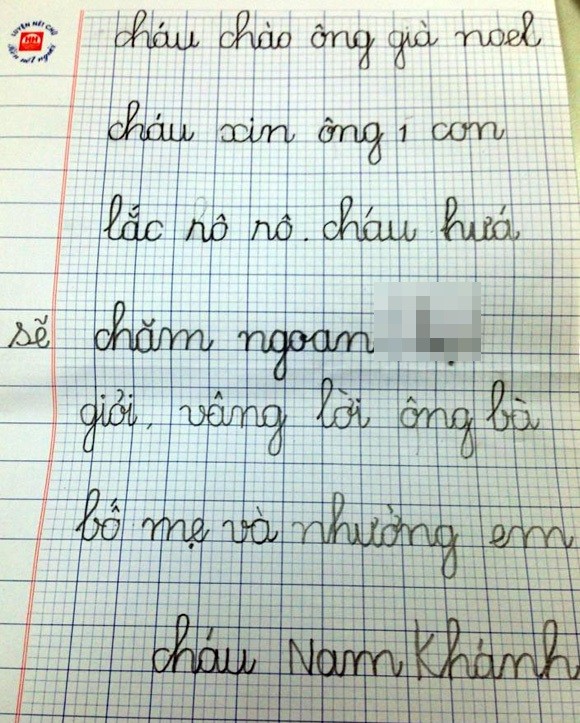 LUYỆN NÉT CHỮ
Rèn nết người
cháu chào ông già noel
cháu xin ông 1 con
lắc nô nô. cháu hưá
sẽ chăm ngoan
giỏi, vâng lời ông bà
bố mẹ và nhường em
cháu Nam Khánh